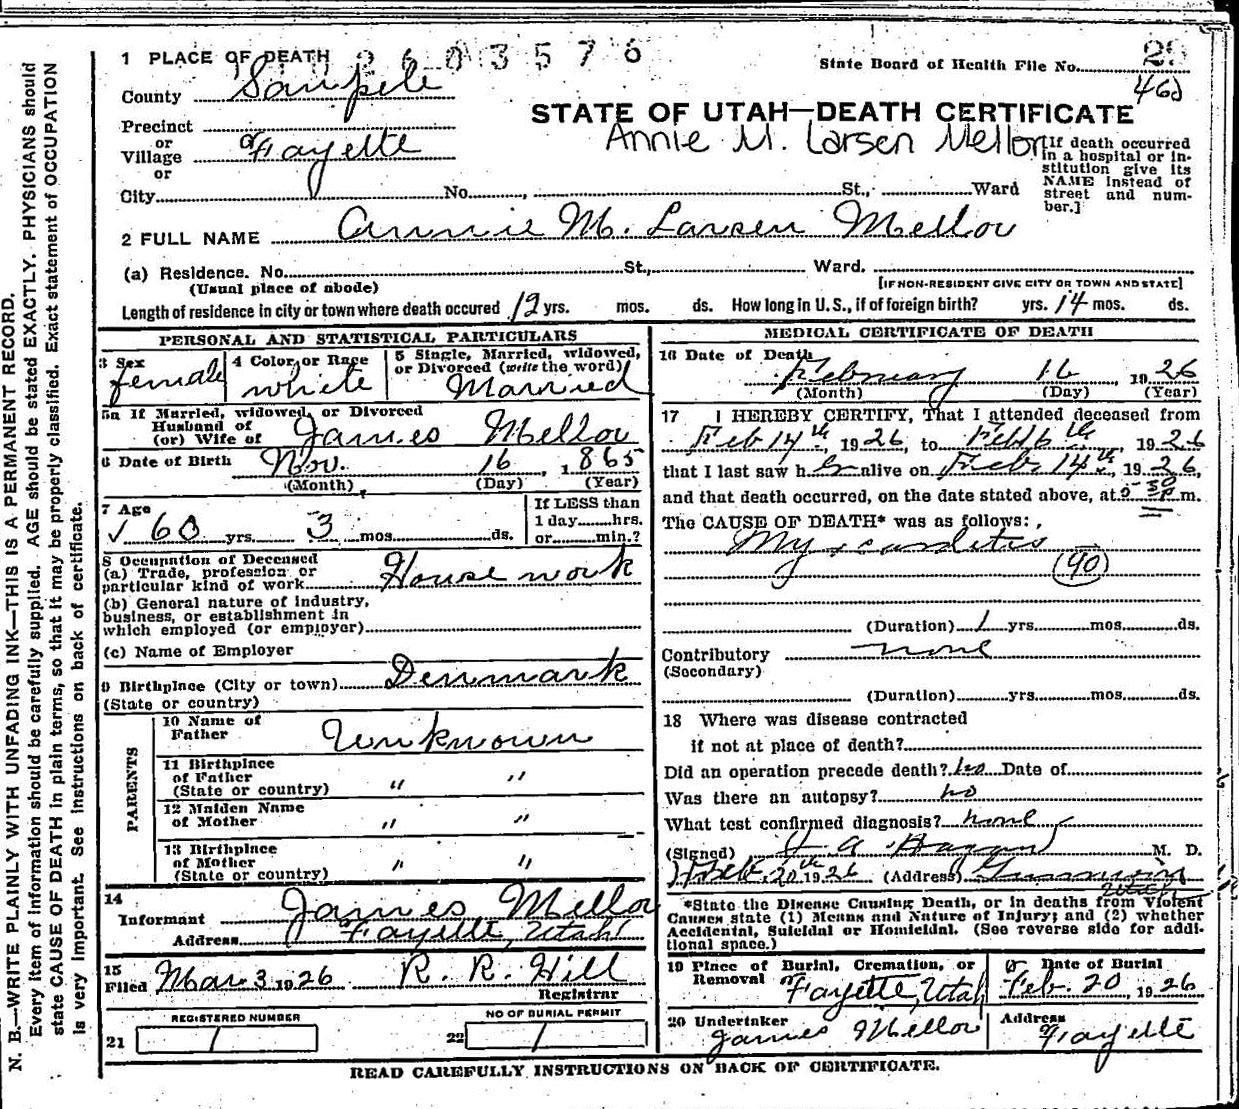 1 PLACE OF DEATH
2603576
State Board of Health File No. 29
County Sanpete
460
STATE OF UTAH—DEATH CERTIFICATE
Annie M. Larsen Mellor
Precinct
or
Village Fayette
or
City No. , St., Ward
[If death occurred
in a hospital or in-
stitution give its
NAME instead of
street and num-
ber.]
2 FULL NAME Annie M. Larsen Mellor
(a) Residence. No. St., Ward.
(Usual place of abode) [IF NON-RESIDENT GIVE CITY OR TOWN AND STATE]
Length of residence in city or town where death occured 12 yrs. mos. ds. How long in U. S., if of foreign birth? yrs. 14 mos. ds.
PERSONAL AND STATISTICAL PARTICULARS
3 Sex
female
4 Color or Race
white
5 Single, Married, widowed,
or Divorced (write the word)
Married
5a If Married, widowed, or Divorced
Husband of
(or) Wife of James Mellor
6 Date of Birth Nov. 16, 1865
(Month) (Day) (Year)
7 Age
60 yrs. 3 mos. ds.
If LESS than
1 day hrs.
or min.?
8 Occupation of Deceased
(a) Trade, profession or
particular kind of work House work
(b) General nature of industry,
business, or establishment in
which employed (or employer)
(c) Name of Employer
9 Birthplace (City or town) Denmark
(State or country)
PARENTS
10 Name of
Father Unknown
11 Birthplace
of Father
(State or country) " "
12 Maiden Name
of Mother " "
13 Birthplace
of Mother
(State or country) " "
14
Informant James Mellor
Address Fayette, Utah
15
Filed Mar 3 1926 R. R. Hill
Registrar
REGISTERED NUMBER
21 1
NO OF BURIAL PERMIT
22 1
MEDICAL CERTIFICATE OF DEATH
16 Date of Death
February 16, 1926
(Month) (Day) (Year)
17 I HEREBY CERTIFY, That I attended deceased from
Feb 14th, 1926, to Feb 16th, 1926
that I last saw her alive on Feb. 14th, 1926,
and that death occurred, on the date stated above, at 5 30 p m.
The CAUSE OF DEATH* was as follows:
Myocarditis
(90)
(Duration) 1 yrs. mos. ds.
Contributory none
(Secondary)
(Duration) yrs. mos. ds.
18 Where was disease contracted
if not at place of death?
Did an operation precede death? no Date of
Was there an autopsy? no
What test confirmed diagnosis? none
(Signed) A. Hagan M. D.
Feb. 20th 1926 (Address) Gunnison
Utah
*State the Disease Causing Death, or in deaths from Violent
Causes state (1) Means and Nature of Injury; and (2) whether
Accidental, Suicidal or Homicidal. (See reverse side for addi-
tional space.)
19 Place of Burial, Cremation, or
Removal Fayette, Utah
Date of Burial
Feb. 20, 1926
20 Undertaker
James Mellor
Address
Fayette
READ CAREFULLY INSTRUCTIONS ON BACK OF CERTIFICATE.
N. B.—WRITE PLAINLY WITH UNFADING INK—THIS IS A PERMANENT RECORD.
Every item of information should be carefully supplied. AGE should be stated EXACTLY. PHYSICIANS should
state CAUSE OF DEATH in plain terms, so that it may be properly classified. Exact statement of OCCUPATION
is very important. See instructions on back of certificate.